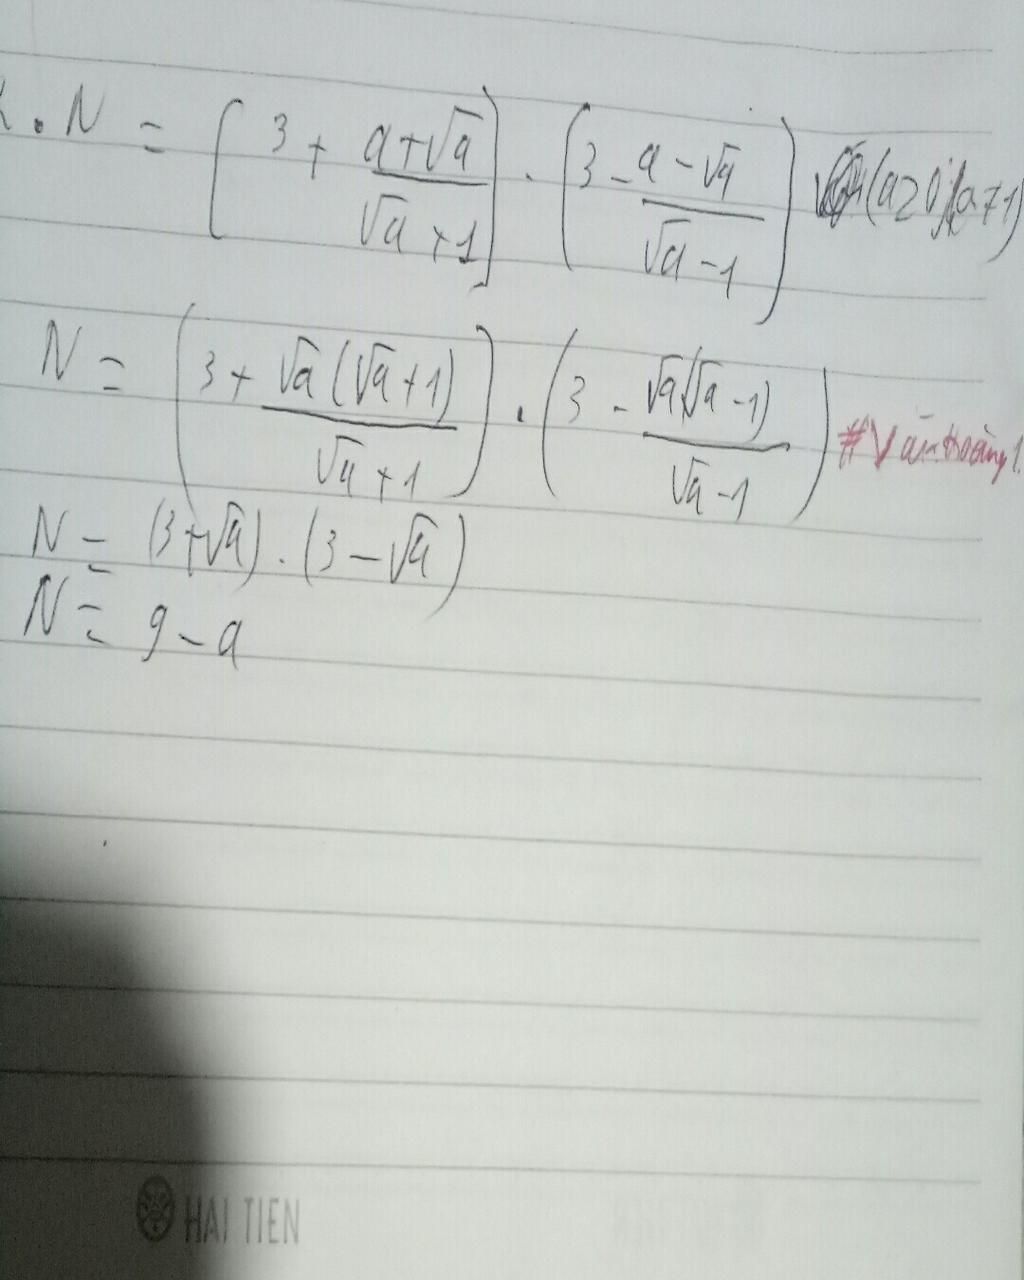 . N = [3 + (a+√a)/(√a+1)] . (3 - (a-√a)/(√a-1)) (a≥0; a≠1)
N = (3 + √a(√a+1)/(√a+1)) . (3 - √a(√a-1)/(√a-1))
N = (3+√a) . (3-√a)
N = 9 - a
HAI TIEN